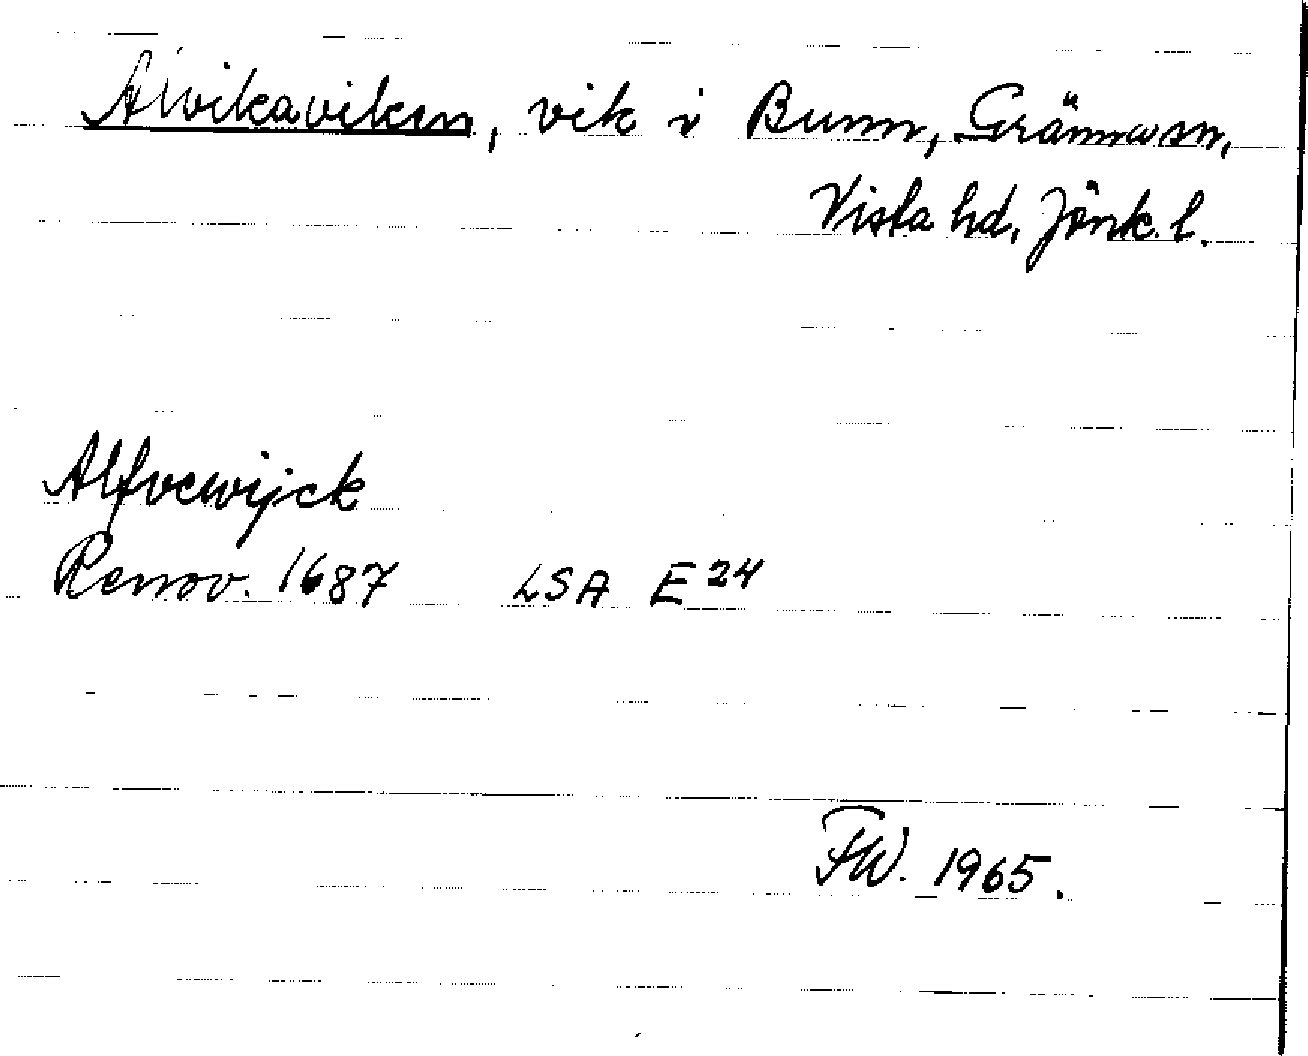 Alvikaviken, vik i Bunn, Gränna sn,
Vista hd, Jönk. l.
Alfvewijck
Renov. 1687 LSA E 24
FW. 1965.